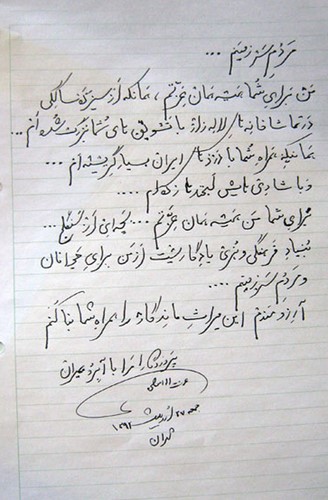 مردم سرزمینم ...
من برای شما همیشه همان عزتم ، همانکه از سیزده سالگی
در تماشاخانه‌های لاله‌زار با تشویق‌های شما بزرگ شده‌ام ...
همانکه همراه شما با دردهای ایران بسیار گریسته‌ام ...
و با شادی‌هایش لبخند زده‌ام ....
برای شما من همیشه همان عزتم ... بچه‌ای از سنگلج ...
بنیاد فرهنگی و هنری یادگاریست از من برای جوانان
و مردم سرزمینم ....
آرزومندم این میراث ماندگار را همراه شما بنا کنم
پروردگارا مرا با آبرو بمیران
عزت‌اله انتظامی
جمعه ۲۷ اردیبهشت
۱۳۹۲
تهران